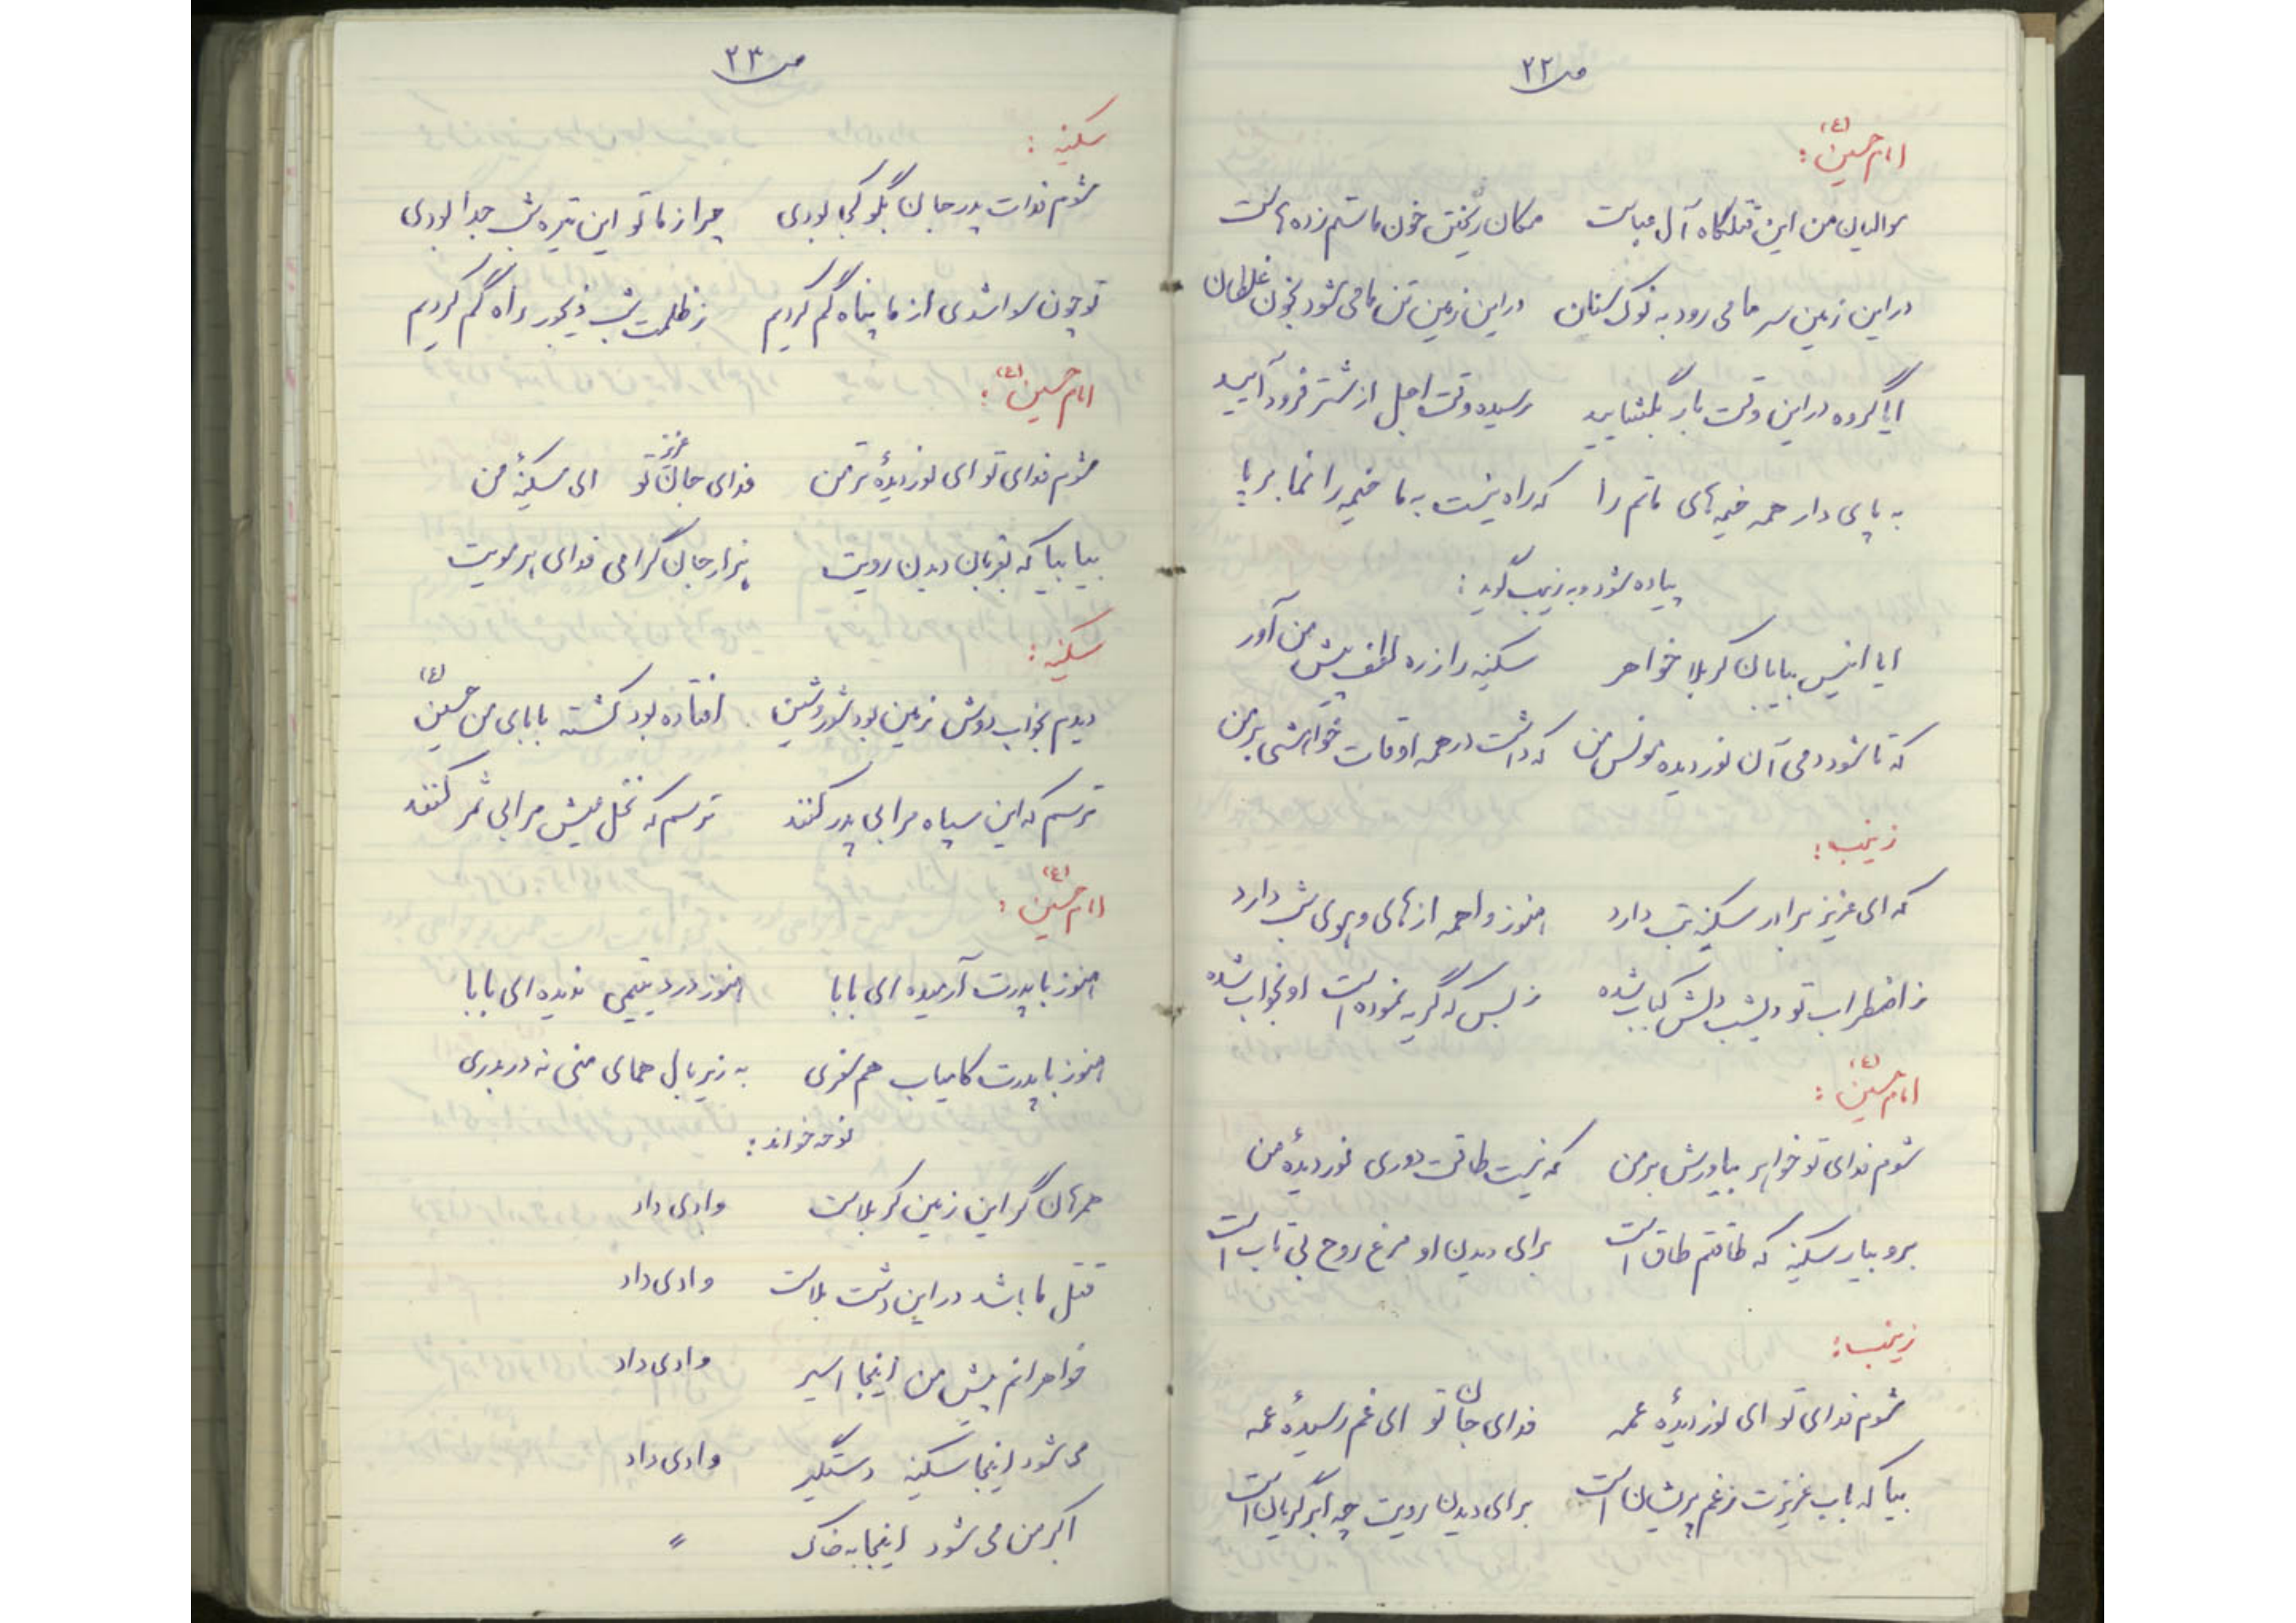 ص ۲۲
امام حسین (ع) :
موالیان من این قتلگاه آل عباست مکان ریختن خون ما ستم زده هاست
در این زمین سر ما می رود به نوک سنان در این زمین تن ما می شود بخون غلطان
ایا گروه در این وقت بار بگشایید رسیده وقت اجل از شتر فرود آیید
به پای دار همه خیمه های ماتم را که راه نیست به ما خیمه را نما برپا
پیاده شود و به زینب گوید :
ایا انیس بیابان کربلا خواهر سکینه را ز ره لطف پیش من آور
که تا شود دمی آن نور دیده مونس من که داشت در همه اوقات خواهشی بر من
زینب :
که ای عزیز برادر سکینه تب دارد هنوز واهمه از های و هوی شب دارد
ز اضطراب تو دیشب دلش کباب شده ز بس که گریه نموده است او بخواب شده
امام حسین (ع) :
شوم فدای تو خواهر بیاورش بر من که نیست طاقت دوری نور دیدهٔ من
برو بیار سکینه که طاقتم طاق است برای دیدن او مرغ روح بی تاب است
زینب :
شوم فدای تو ای نور دیدهٔ عمه فدای جان تو ای غم رسیدهٔ عمه
بیا که باب عزیزت ز غم پریشان است برای دیدن رویت چه ابر گریان است
ص ۲۳
سکینه :
شوم فدات پدر جان بگو کجا بودی چرا ز ما تو این تیره شب جدا بودی
تو چون سوا شدی از ما پناه گم کردیم ز ظلمت شب دیجور راه گم کردیم
امام حسین (ع) :
شوم فدای تو ای نور دیدهٔ تر من فدای جان عزیز تو ای سکینهٔ من
بیا بیا که بقربان دیدن رویت هزار جان گرامی فدای هر مویت
سکینه :
دیدم بخواب دوش زمین بود شور و شین افتاده بود کشته بابای من حسین (ع)
ترسم که این سپاه مرا بی پدر کنند ترسم که نخل عیش مرا بی ثمر کنند
امام حسین (ع) :
هنوز با پدرت آرمیده ای بابا هنوز درد یتیمی ندیده ای بابا
هنوز با پدرت کامیاب هم سفری به زیر بال همای منی نه در بدری
نوحه خواند :
همرهان گر این زمین کربلاست وادی داد
قتل ما باشد در این دشت بلاست وادی داد
خواهرانم پیش من اینجا اسیر وادی داد
می شود اینجا سکینه دستگیر وادی داد
اکبر من می شود اینجا به خاک "